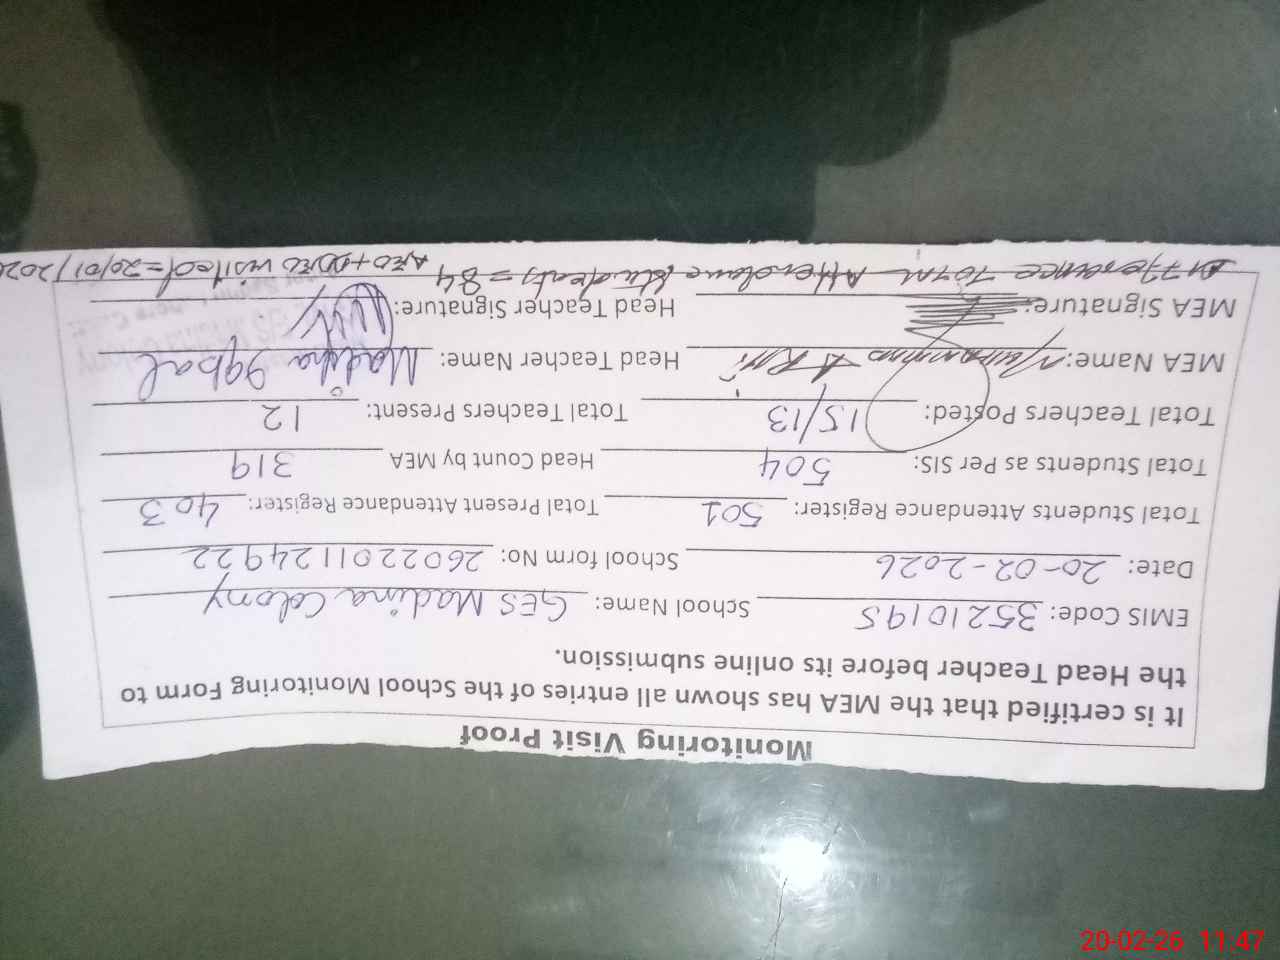 Monitoring Visit Proof
It is certified that the MEA has shown all entries of the School Monitoring Form to
the Head Teacher before its online submission.
EMIS Code: 35210195 School Name: GES Madina Colony
Date: 20-02-2026 School form No: 2602201124922
Total Students Attendance Register: 501 Total Present Attendance Register: 403
Total Students as Per SIS: 504 Head Count by MEA 319
Total Teachers Posted: 15/13 Total Teachers Present: 12
MEA Name: Head Teacher Name: Madiha Iqbal
MEA Signature: Head Teacher Signature:
Total Attendance Students = 84 AEO + DDEO visited = 20/01/2026
20-02-26 11:47